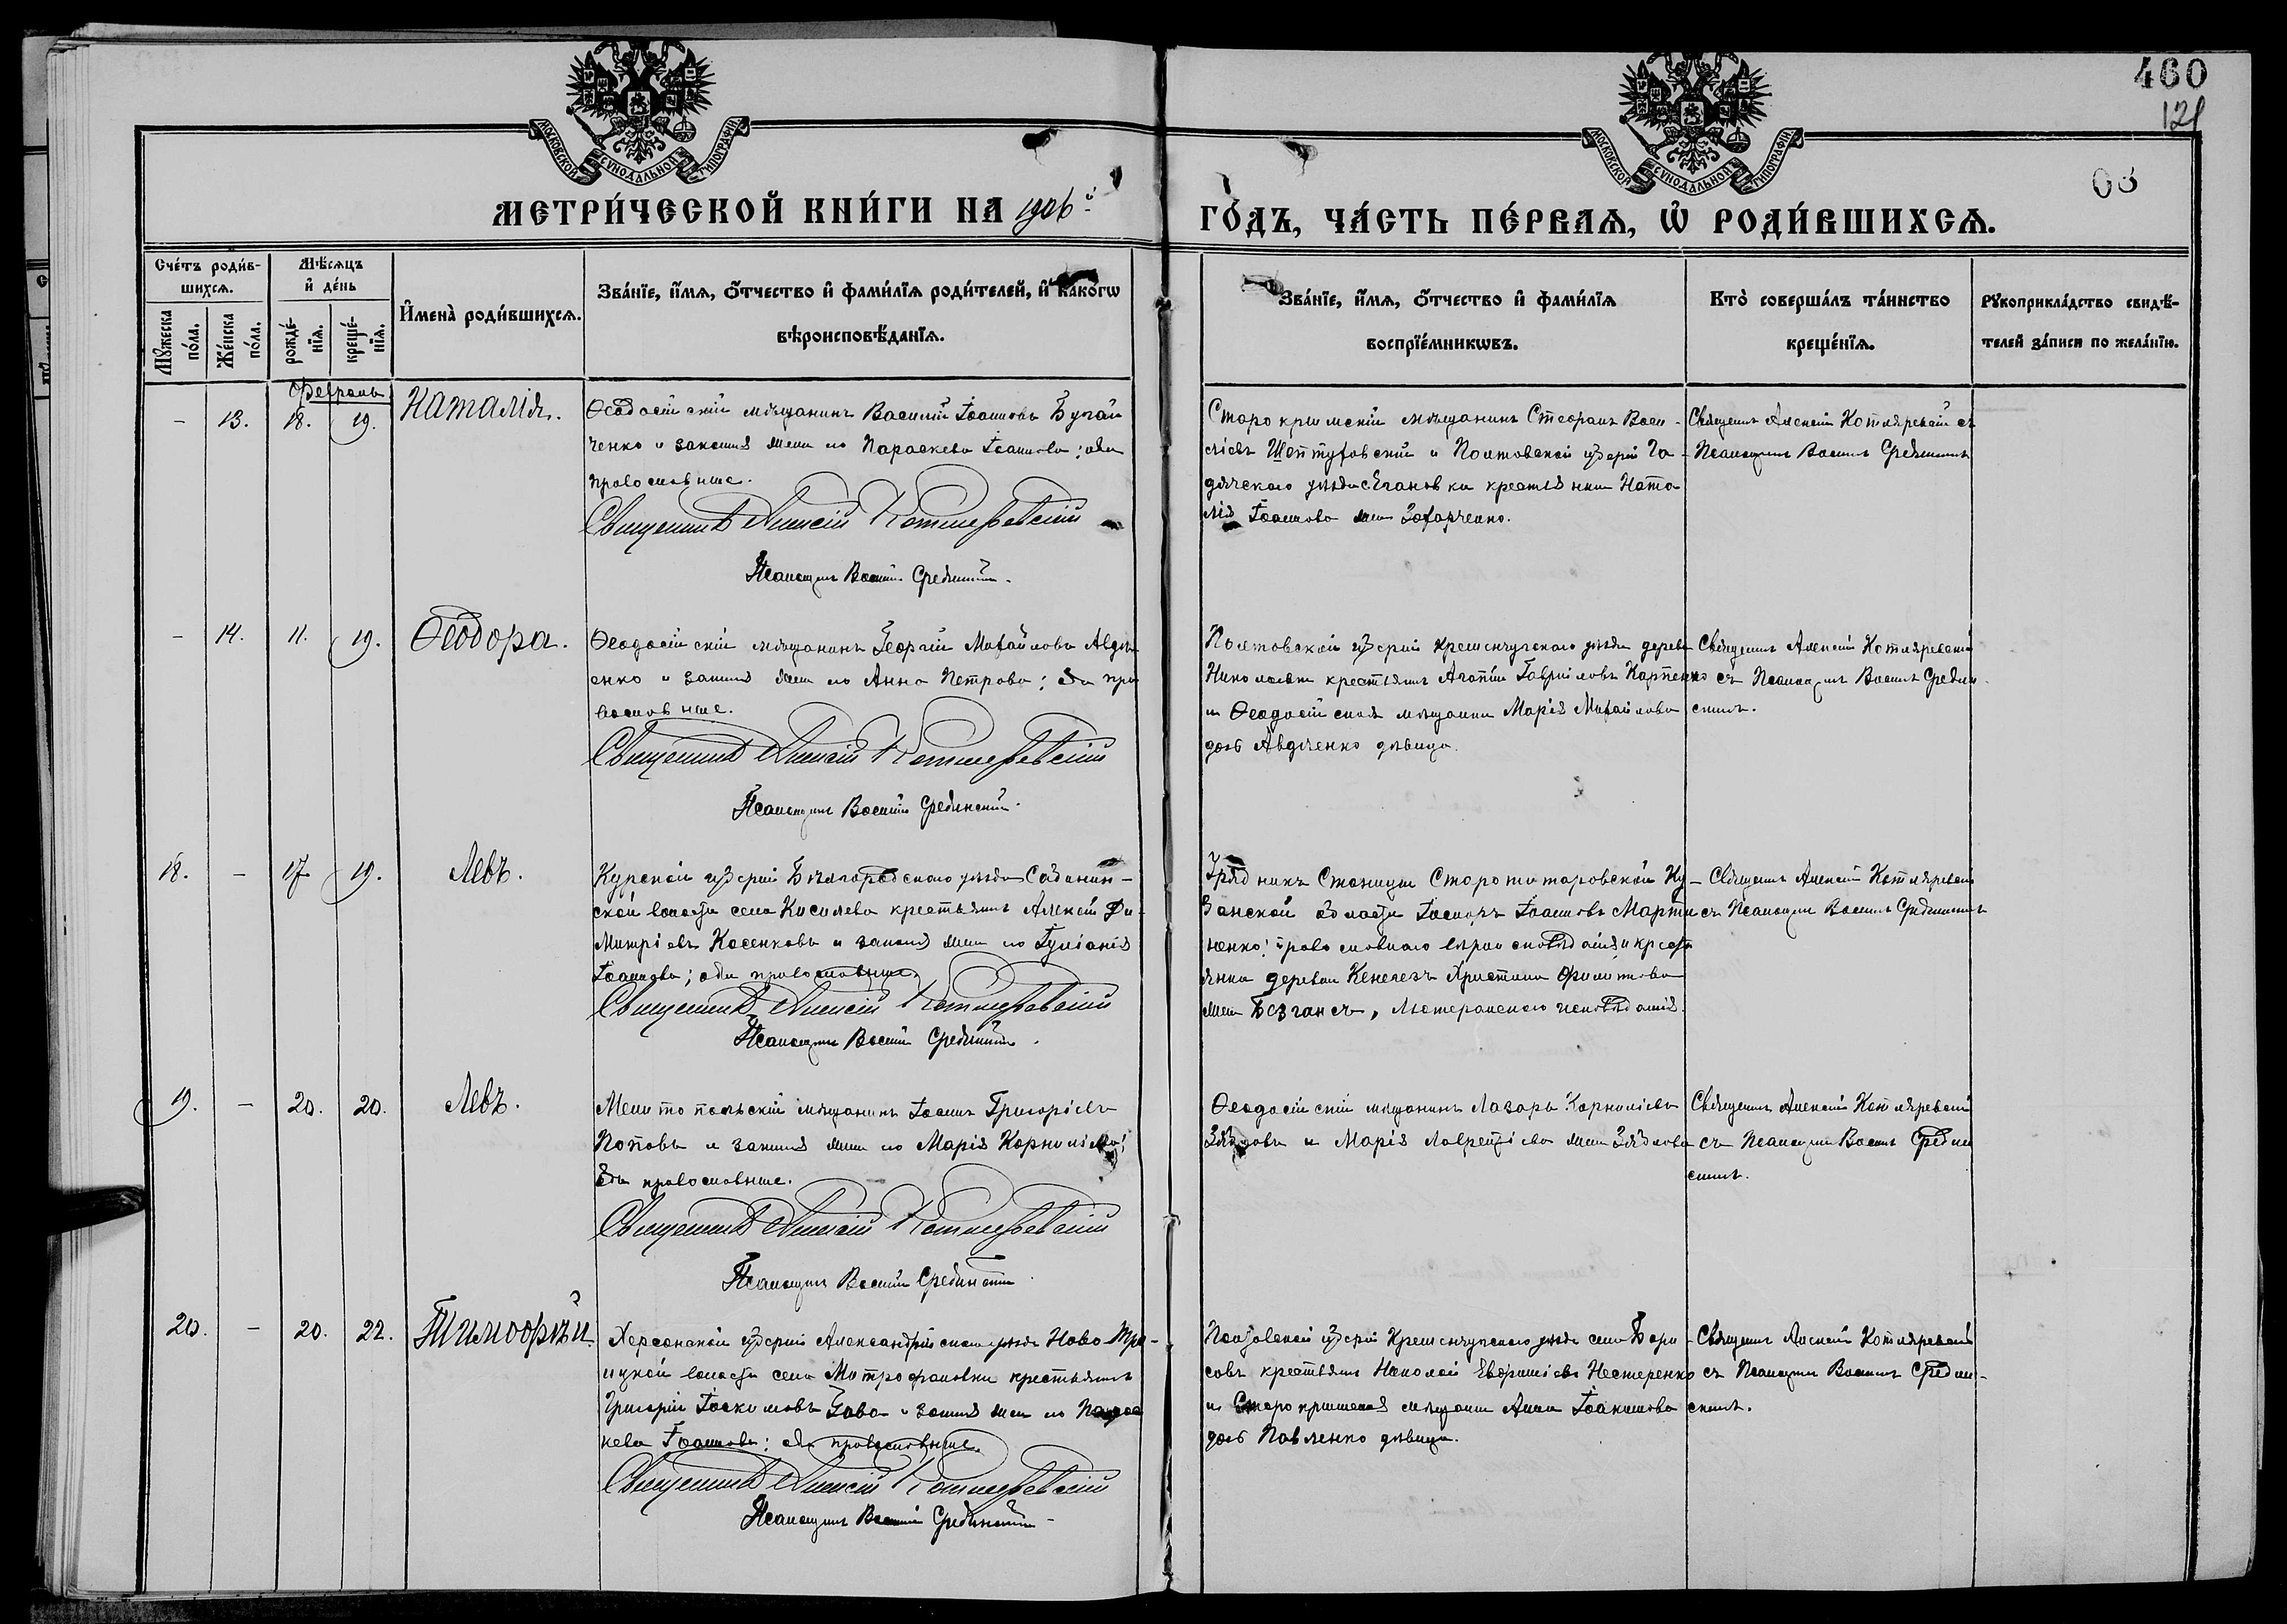 460
121
63
МОСКОВСКОЙ СѴНОДАЛЬНОЙ ТИПОГРАФІИ
МОСКОВСКОЙ СѴНОДАЛЬНОЙ ТИПОГРАФІИ
МЕТРИ́ЧЕСКОЙ КНИ́ГИ НА 1906й
ГО́ДЪ, ЧА́СТЬ ПЕ́РВАЯ, Ѡ РОДИ́ВШИХСЯ.
Сче́тъ роди́в-
шихся.
Мѣ́сяцъ
и де́нь
Мꙋ́жеска
по́ла.
Же́нска
по́ла.
рожде́-
нїя.
креще́-
нїя.
Имена̀ роди́вшихся.
Зва́нїе, и́мя, о́тчество и фами́лїя роди́телей, и како́гѡ
вѣроисповѣ́данїя.
Зва́нїе, и́мя, о́тчество и фами́лїя
воспрїе́мникѡвъ.
Кто̀ соверша́лъ та́инство
креще́нїя.
Рꙋкоприкла́дство свидѣ́-
телей за́писи по жела́нїю.
Февраль
- 13. 18. 19. Наталія.
Ѳеодосійскій мѣщанинъ Василій Іоанновъ Бугай
ченко и законная жена его Параскева Іоаннова; оба
православные.
Священникъ Алексій Котляревскій
Псаломщикъ Василій Срединскій.
Старокрымскій мѣщанинъ Стефанъ Васи-
ліевъ и Полтавской губерніи Га-
дячскаго уѣзда крестьянка Ната
лія Іоаннова жена Захарченко.
Священникъ Алексій Котляревскій съ
Псаломщикомъ Василіемъ Срединскимъ
- 14. 11. 19. Ѳеодора.
Ѳеодосійскій мѣщанинъ Георгій Михайловъ Авдѣ
енко и законная жена его Анна Петрова; оба пра
вославные.
Священникъ Алексій Котляревскій
Псаломщикъ Василій Срединскій.
Полтавской губерніи Кременчугскаго уѣзда деревни
Николаевки крестьянинъ Агапій Гавріиловъ Карпенко
и Ѳеодосійская мѣщанка Марія Михайлова
дочь Авдѣенко дѣвица.
Священникъ Алексій Котляревскій
съ Псаломщикомъ Василіемъ Средин-
скимъ.
18. - 17. 19. Левъ.
Курской губерніи Бѣлгородскаго уѣзда Сабынин-
ской волости села Киселева крестьянинъ Алексій Ди-
митріевъ Косенковъ и законная жена его Іуліанія
Іоаннова; оба православные.
Священникъ Алексій Котляревскій
Псаломщикъ Василій Срединскій.
Урядникъ Станицы Старотитаровской Ку-
банской области Іоаннъ Іоанновъ Марти
ненко; православнаго вѣроисповѣданія и кресть
янка деревни Кенегезъ Христина Филиппова
жена , Лютеранскаго исповѣданія.
Священникъ Алексій Котляревскій
съ Псаломщикомъ Василіемъ Срединскимъ
19. - 20. 20. Левъ.
Мелитопольскій мѣщанинъ Іоаннъ Григоріевъ
Поповъ и законная жена его Марія Корниліева;
оба православные.
Священникъ Алексій Котляревскій
Псаломщикъ Василій Срединскій.
Ѳеодосійскій мѣщанинъ Лазарь Корниліевъ
Зябловъ и Марія Лаврентіева жена Зяблова
Священникъ Алексій Котляревскій
съ Псаломщикомъ Василіемъ Средин
скимъ.
20. - 20. 22. Тимофей.
Херсонской губерніи Александрійскаго уѣзда Ново-Тро-
ицкой волости села Митрофановки крестьянинъ
Григорій Іоакимовъ и законная жена его Парас
кева Іоаннова; оба православные.
Священникъ Алексій Котляревскій
Псаломщикъ Василій Срединскій
Полтавской губерніи Кременчугскаго уѣзда села Бори-
совъ крестьянинъ Николай Евфиміевъ Нестеренко
и Старокрымская мѣщанка Анна Іоакимова
дочь Павленко дѣвица.
Священникъ Алексій Котляревскій
съ Псаломщикомъ Василіемъ Средин-
скимъ.